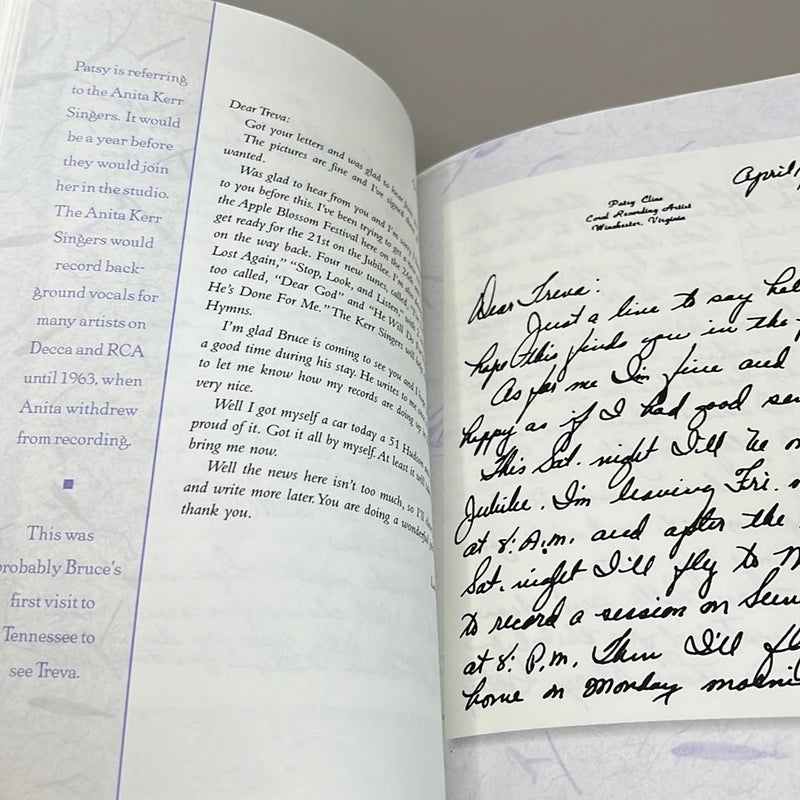 Patsy is referring
to the Anita Kerr
Singers. It would
be a year before
they would join
her in the studio.
The Anita Kerr
Singers would
record back-
ground vocals for
many artists on
Decca and RCA
until 1963, when
Anita withdrew
from recording.
This was
probably Bruce's
first visit to
Tennessee to
see Treva.
Dear Treva:
Got your letters and was glad to hear
The pictures are fine and I've signed
wanted.
Was glad to hear from you and I'm
to you before this, I've been trying to get
the Apple Blossom Festival here on the
get ready for the 21st on the Jubilee. I'm
on the way back. Four new tunes, called
Lost Again," "Stop, Look, and Listen,"
too called, "Dear God" and "He Will Do
He's Done For Me." The Kerr Singers will
Hymns.
I'm glad Bruce is coming to see you and I
a good time during his stay. He writes to me
to let me know how my records are doing up
very nice.
Well I got myself a car today a 51 Hudson
proud of it. Got it all by myself. At least it will
bring me now.
Well the news here isn't too much, so I'll
and write more later. You are doing a wonderful
thank you.
April
Patsy Cline
Coral Recording Artist
Winchester, Virginia
Dear Treva:
Just a line to say
hope this finds you in the
As for me I'm fine and
happy as if I had good
This Sat. night I'll be
Jubilee. I'm leaving Fri.
at 8: A.m. and after the
Sat. night I'll fly to
to record a session on
at 8: P.m. Then I'll
home on Monday